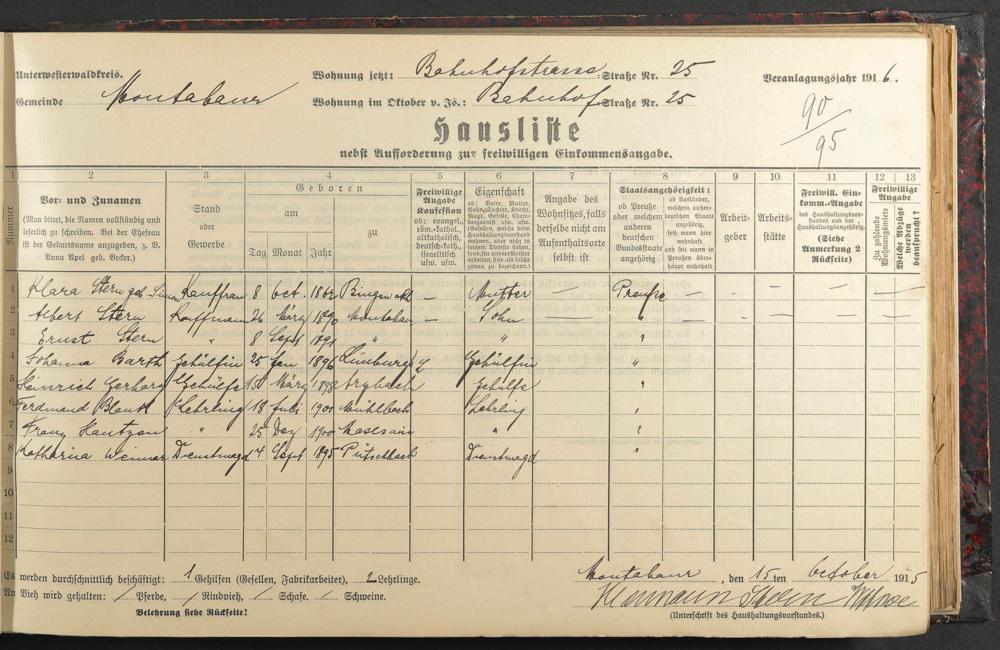 Unterwesterwaldkreis.
Wohnung jetzt: Bahnhofstrasse Straße Nr. 25
Veranlagungsjahr 1916.
Gemeinde Montabaur
Wohnung im Oktober v. Js.: Bahnhof Straße Nr. 25
90
95
Hausliste
nebst Aufforderung zur freiwilligen Einkommensangabe.
1 2 3 4 5 6 7 8 9 10 11 12 13
Nummer
Vor- und Zunamen
(Man bittet, die Namen vollständig und
leserlich zu schreiben. Bei der Ehefrau
ist der Geburtsname anzugeben, z. B.
Anna Apel geb. Becker.)
Stand
oder
Gewerbe
Geboren
am
zu
Tag Monat Jahr
Freiwillige
Angabe
Konfession
ob: evangel.,
röm.-kathol.,
altkatholisch,
deutsch-kath.,
israelitisch
usw. usw.
Eigenschaft
Angabe des
Wohnsitzes, falls
derselbe nicht am
Aufenthaltsorte
selbst ist
Staatsangehörigkeit:
ob Preuße
oder welchem
anderen
deutschen
Bundesstaate
angehörig
ob Ausländer,
welchem außer-
deutschen Staate
angehörig,
seit wann hier
wohnhaft
und seit wann in
Preußen über-
haupt wohnhaft
Arbeit-
geber
Arbeits-
stätte
Freiwill. Ein-
komm.-Angabe
des Haushaltungsvor-
standes und der
Haushaltungsangehörig.
(Siehe
Anmerkung 2
Rückseite)
Freiwillige
Angabe
Zu zahlende
Wohnungsmiete
Welche Abzüge
werden
beansprucht?
1 Klara Stern geb. Kauffrau 8 Oct. 1862 Bingen — Mutter — Preuße — — — — —
2 Albert Stern Kaufmann 26 März 1890 Montabaur — Sohn — " — — — — —
3 Ernst Stern " 8 Sept 1891 " " "
4 Johanna Barth Gehülfin 25 Jan 1896 Limburg Gehülfin "
5 Heinrich Gerharz Gehülfe 15 März 1898 Arzbach Gehilfe "
6 Ferdinand Lehrling 18 Juli 1901 Lehrling "
7 Franz 25 Dez 1900 "
8 Katharina Weimar Dienstmagd 4 Sept 1895 Pütschbach Dienstmagd "
9
10
11
12
Es werden durchschnittlich beschäftigt: 1 Gehilfen (Gesellen, Fabrikarbeiter), 2 Lehrlinge.
Montabaur, den 15ten October 1915
An Vieh wird gehalten: / Pferde, / Rindvieh, / Schafe. / Schweine.
Hermann Stern Witwe
Belehrung siehe Rückseite!
(Unterschrift des Haushaltungsvorstandes.)